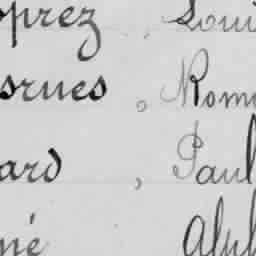 oprez, Loui
srues, Rom
ard, Paul
né Alph